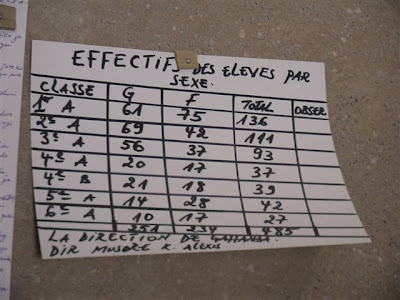 EFFECTIFS DES ELEVES PAR
SEXE.
CLASSE G F TOTAL OBSER
1re A 61 75 136
2e A 69 42 111
3e A 56 37 93
4e A 20 17 37
4e B 21 18 39
5e A 14 28 42
6e A 10 17 27
251 234 485
LA DIRECTION DE
DIR MUSORE K. ALEXIS